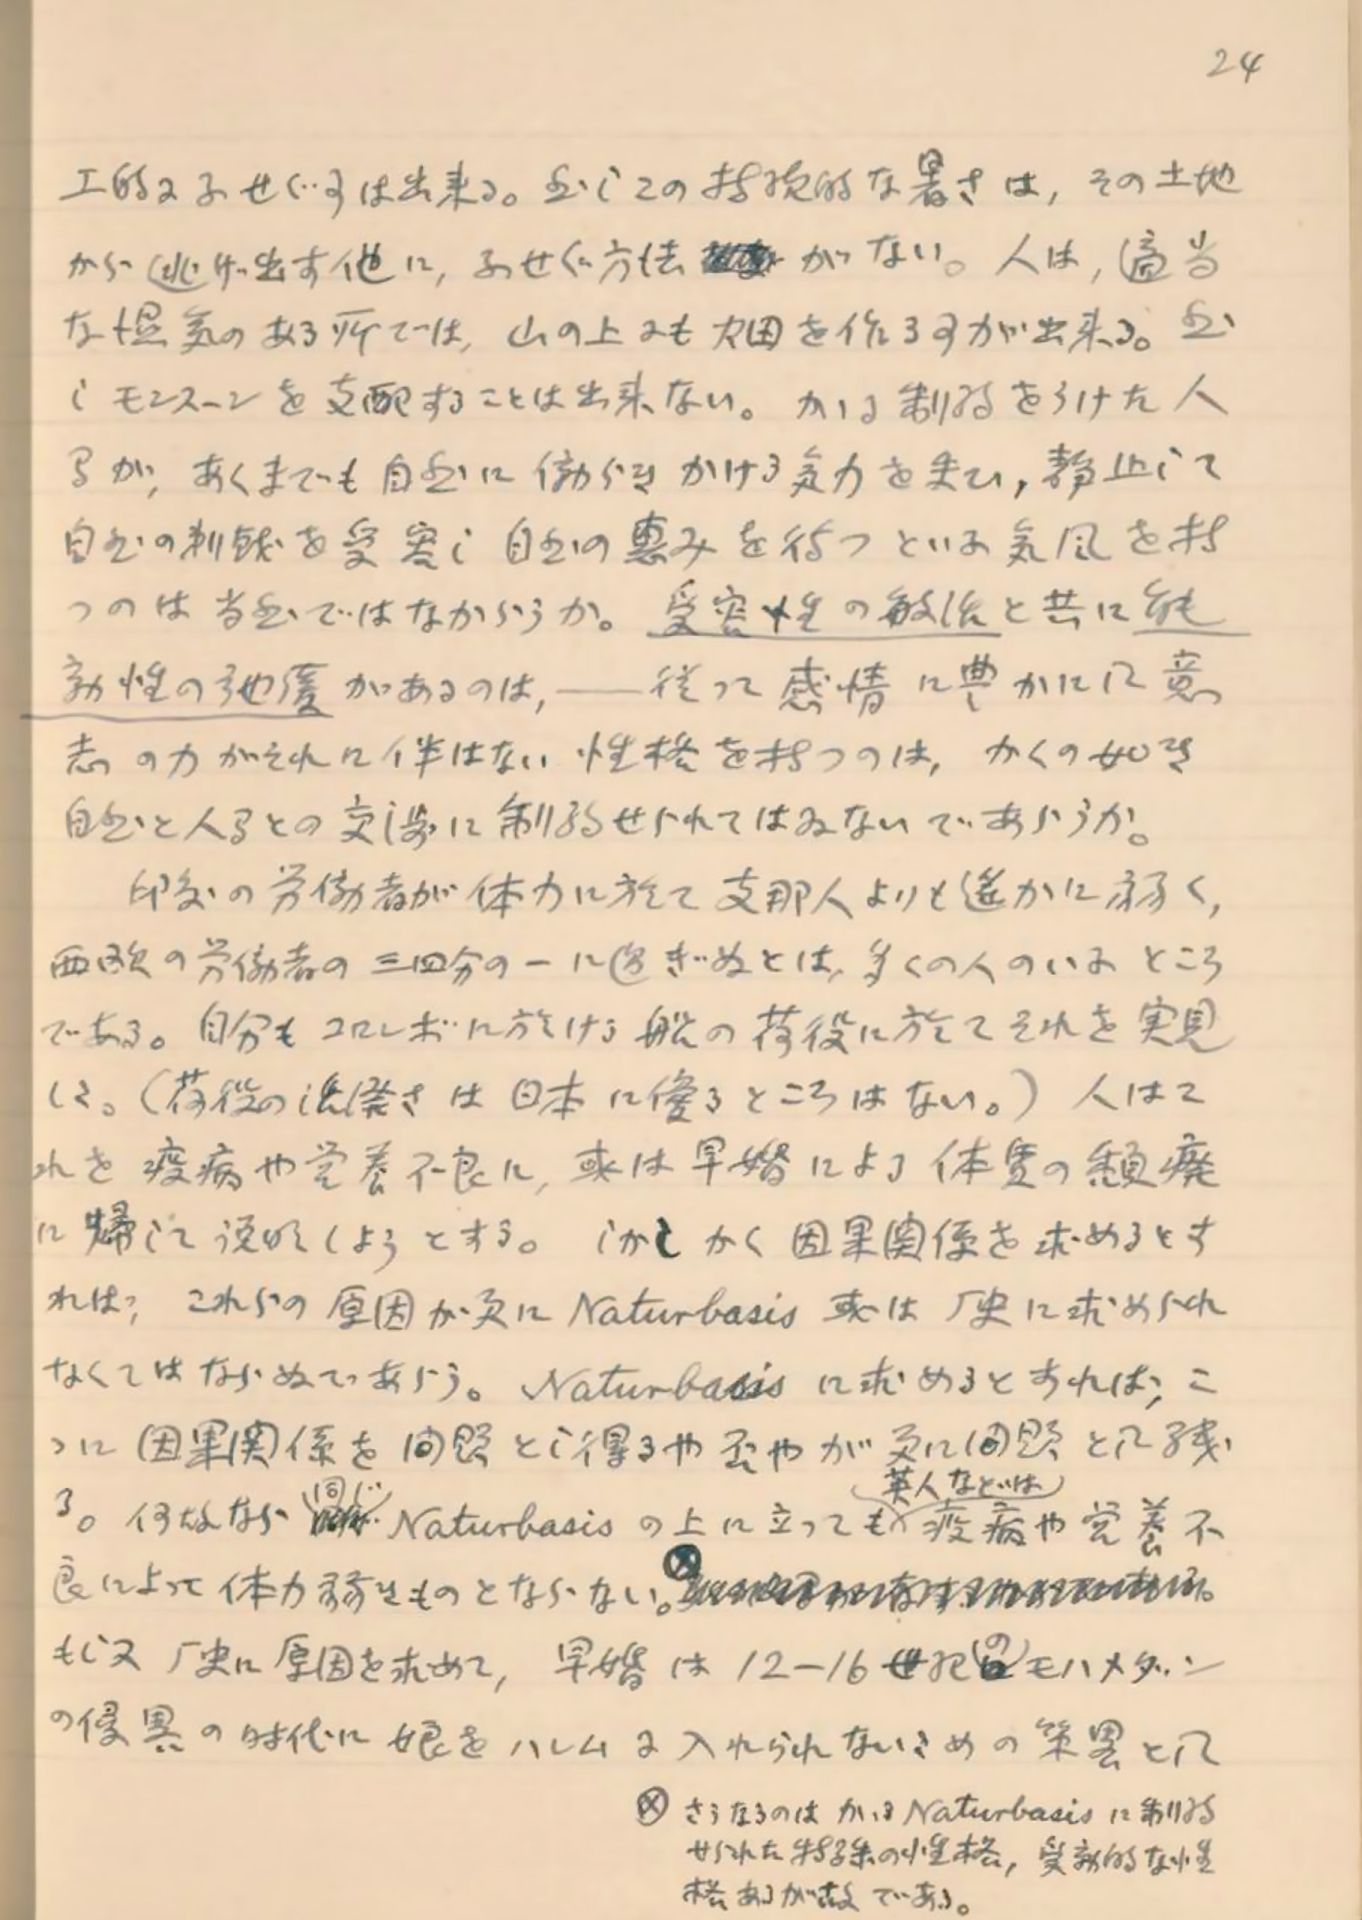 24
工的にふせぐ事は出来る。然しこの持続的な暑さは, その土地
から逃げ出す他に, ふせぐ方法 がない。人は, 適当
な湿気のある所では, 山の上にも水田を作る事が出来る。然
しモンスーンを支配することは出来ない。かゝる制約をうけた人
間が, あくまでも自然に働らきかける気力を失ひ, 静止して
自然の刺戟を受容し自然の恵みを待つといふ気風を持
つのは当然ではなからうか。受容性の敏活と共に能
動性の弛緩があるのは, ——従って感情に豊かにして意
志の力がそれに伴はない性格を持つのは, かくの如き
自然と人間との交渉に制約せられてはゐないであらうか。
印度の労働者が体力に於て支那人よりも遙かに弱く,
西欧の労働者の三四分の一に過ぎぬとは, 多くの人のいふところ
である。自分もコロンボに於ける船の荷役に於てそれを実見
した。(荷役の活溌さは日本に優るところはない。) 人はこ
れを疫病や営養不良に, 或は早婚による体質の頽廃
に帰して説明しようとする。しかしかく因果関係を求めるとす
れば, これらの原因が更にNaturbasis或は歴史に求められ
なくてはならぬであらう。Naturbasisに求めるとすれば, こ
ゝに因果関係を問題とし得るや否やが更に問題として残
る。何故なら同じNaturbasisの上に立っても英人などは疫病や営養不
良によって体力弱きものとならない。⊗
もし又歴史に原因を求めて, 早婚は12—16世紀のモハメダン
の侵略の時代に娘をハレムに入れられないための策略として
⊗ さうなるのはかゝるNaturbasisに制約
せられた特殊の性格, 受動的な性
格あるが故である。